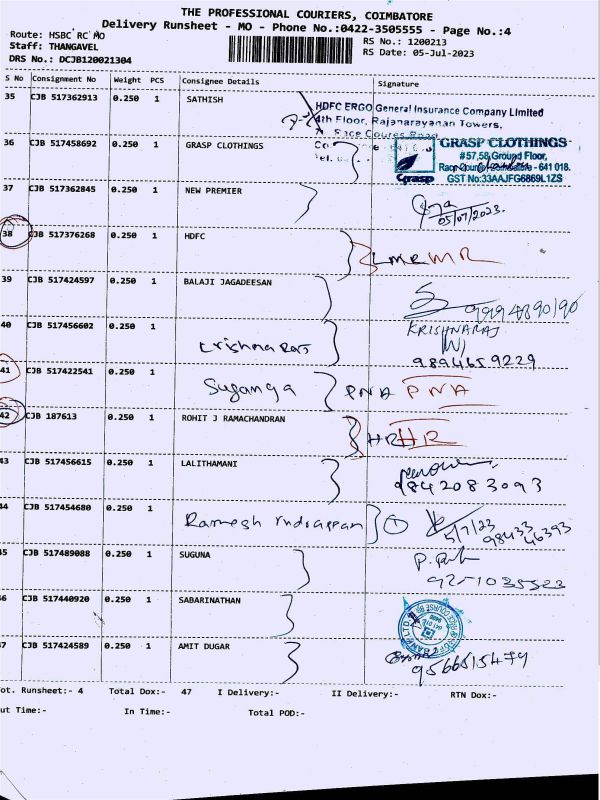 THE PROFESSIONAL COURIERS, COIMBATORE
Delivery Runsheet - MO - Phone No.:0422-3505555 - Page No.:4
Route: HSBC RC MO
RS No.: 1200213
Staff: THANGAVEL
RS Date: 05-Jul-2023
DRS No.: DCJB120021304
S No Consignment No Weight PCS Consignee Details Signature
35 CJB 517362913 0.250 1 SATHISH
HDFC ERGO General Insurance Company Limited
4th Floor, Rajanarayanan Towers,
Race Coures Road
36 CJB 517458692 0.250 1 GRASP CLOTHINGS
GRASP CLOTHINGS
#57,58,Ground Floor,
641 018.
Grasp GST No:33AAJFG6869L1ZS
37 CJB 517362845 0.250 1 NEW PREMIER
05/07/2023.
38 CJB 517376268 0.250 1 HDFC
MR
39 CJB 517424597 0.250 1 BALAJI JAGADEESAN
9994890190
40 CJB 517456602 0.250 1 Krishna Raj
KRISHNARAJ
9894659229
41 CJB 517422541 0.250 1 Suganga PNA PNA
42 CJB 187613 0.250 1 ROHIT J RAMACHANDRAN HR HR
43 CJB 517456615 0.250 1 LALITHAMANI
9842083093
44 CJB 517454680 0.250 1 Ramesh 1
5/7/23
98433
46393
45 CJB 517489088 0.250 1 SUGUNA
46 CJB 517440920 0.250 1 SABARINATHAN
47 CJB 517424589 0.250 1 AMIT DUGAR
9566515479
Tot. Runsheet:- 4 Total Dox:- 47 I Delivery:- II Delivery:- RTN Dox:-
Out Time:- In Time:- Total POD:-